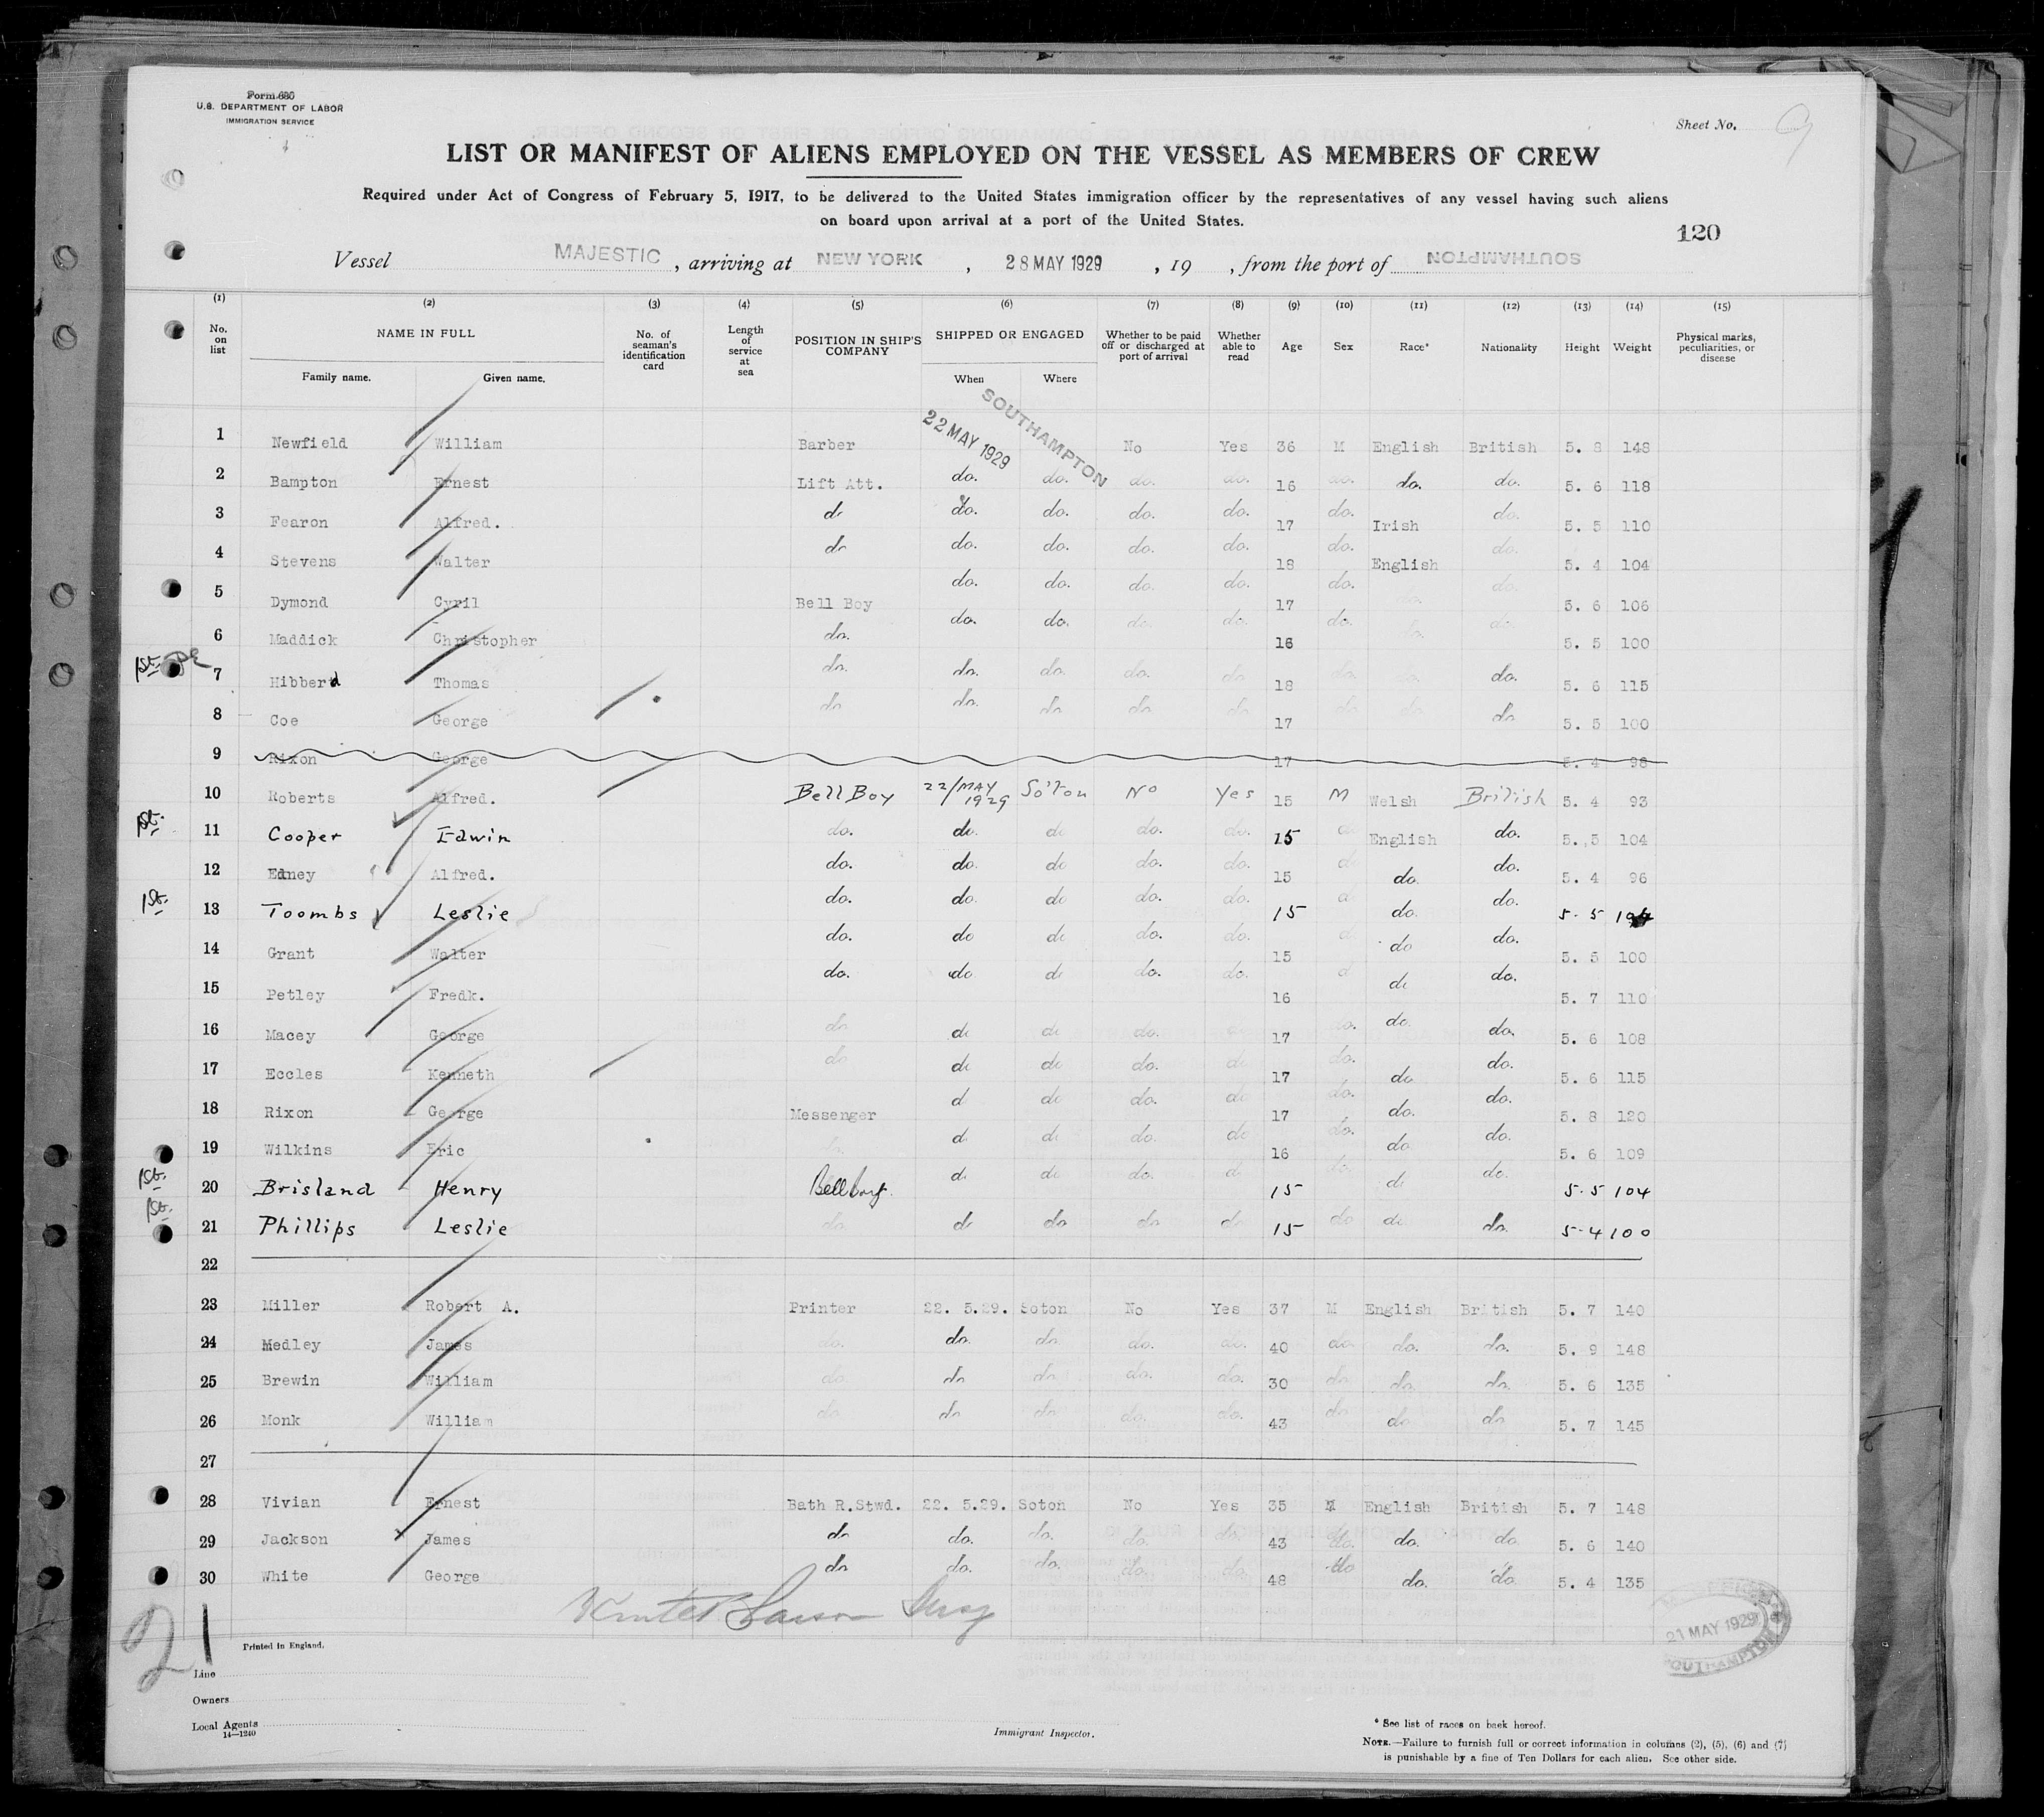 Form 686
U.S. DEPARTMENT OF LABOR
IMMIGRATION SERVICE
Sheet No. 9
LIST OR MANIFEST OF ALIENS EMPLOYED ON THE VESSEL AS MEMBERS OF CREW
Required under Act of Congress of February 5, 1917, to be delivered to the United States immigration officer by the representatives of any vessel having such aliens
on board upon arrival at a port of the United States.
120
Vessel MAJESTIC, arriving at NEW YORK, 28 MAY 1929, 19 , from the port of SOUTHAMPTON
(1) (2) (3) (4) (5) (6) (7) (8) (9) (10) (11) (12) (13) (14) (15)
No. on list NAME IN FULL No. of seaman's identification card Length of service at sea POSITION IN SHIP'S COMPANY SHIPPED OR ENGAGED Whether to be paid off or discharged at port of arrival Whether able to read Age Sex Race* Nationality Height Weight Physical marks, peculiarities, or disease
Family name. Given name. When Where
22 MAY 1929 SOUTHAMPTON
1 Newfield William Barber No Yes 36 M English British 5. 8 148
2 Bampton Ernest Lift Att. do. do. do. do. 16 do. do. do. 5. 6 118
3 Fearon Alfred. do do. do. do. do. 17 do. Irish do. 5. 5 110
4 Stevens Walter do do. do. do. do. 18 do. English do. 5. 4 104
5 Dymond Cyril Bell Boy do. do. do. do. 17 do. do. do. 5. 6 106
6 Maddick Christopher do. do. do. do. do. 16 do. do. do. 5. 5 100
1st. 7 Hibberd Thomas do. do. do. do. do 18 do. do. do. 5. 6 115
8 Coe George do do. do do do 17 do do do 5. 5 100
9 Rixon George 17 5. 4 98
10 Roberts Alfred. Bell Boy 22/MAY 1929 So'ton No Yes 15 M Welsh British 5. 4 93
1st. 11 Cooper Edwin do. do. do do. do. 15 do English do. 5. 5 104
12 Edney Alfred. do. do. do do. do. 15 do do. do. 5. 4 96
1st. 13 Toombs Leslie do. do. do do. do. 15 do do. do. 5. 5
14 Grant Walter do. do do do. do. 15 do do do. 5. 5 100
15 Petley Fredk. do. do do do. do. 16 do do do. 5. 7 110
16 Macey George do do do do. do 17 do. do. do. 5. 6 108
17 Eccles Kenneth do do do do. do 17 do. do. do. 5. 6 115
18 Rixon George Messenger do do do. do 17 do. do. do. 5. 8 120
19 Wilkins Eric do do do do 16 do. do do. 5. 6 109
1st. 20 Brisland Henry Bellboy. do do do. do 15 do do do. 5. 5 104
1st. 21 Phillips Leslie do do do do do 15 do do do. 5. 4 100
22
23 Miller Robert A. Printer 22. 5.29. Soton No Yes 37 M English British 5. 7 140
24 Medley James do. do. do do. do. 40 do do. do. 5. 9 148
25 Brewin William do. do do. do. do. 30 do do. do. 5. 6 135
26 Monk William do do do do. do. 43 do do do 5. 7 145
27
28 Vivian Ernest Bath R.Stwd. 22. 5.29. Soton No Yes 35 M English British 5. 7 148
29 Jackson James do do. do. do. do. 43 do. do. do. 5. 6 140
30 White George do do. do. do. do. 48 do do. do. 5. 4 135
21
21 MAY 1929
SOUTHAMPTON
Printed in England.
Line
Owners
Local Agents
14—1240
Immigrant Inspector.
* See list of races on back hereof.
NOTE.—Failure to furnish full or correct information in columns (2), (5), (6) and (7)
is punishable by a fine of Ten Dollars for each alien. See other side.